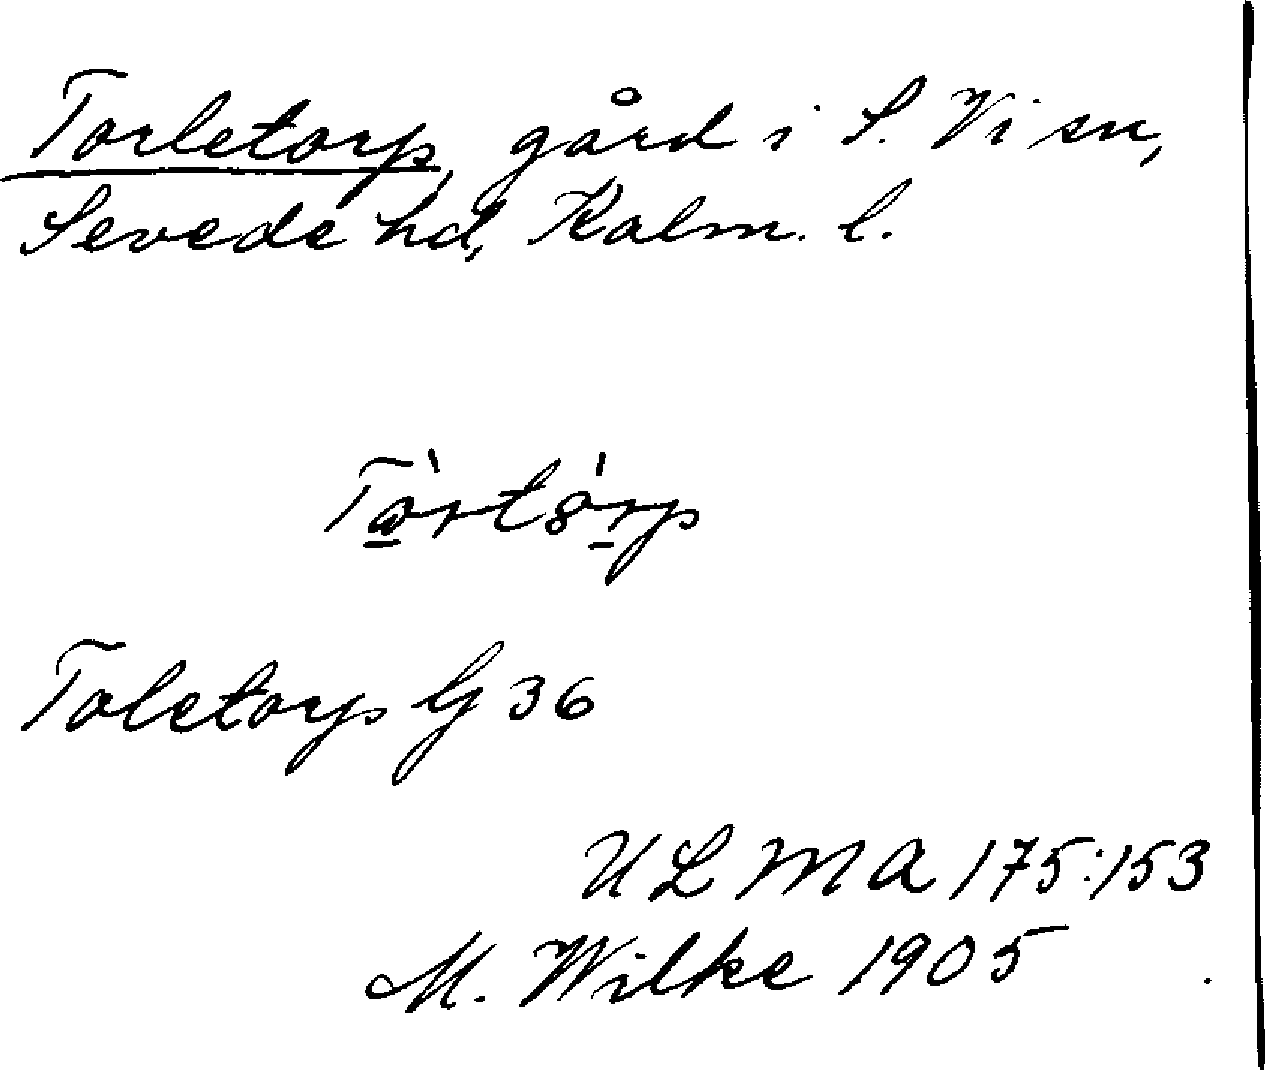 Torletorp, gård i S. Vi sn,
Sevede hd, Kalm. l.
Toletorp G 36
U L M A 175:153
M. Wilke 1905